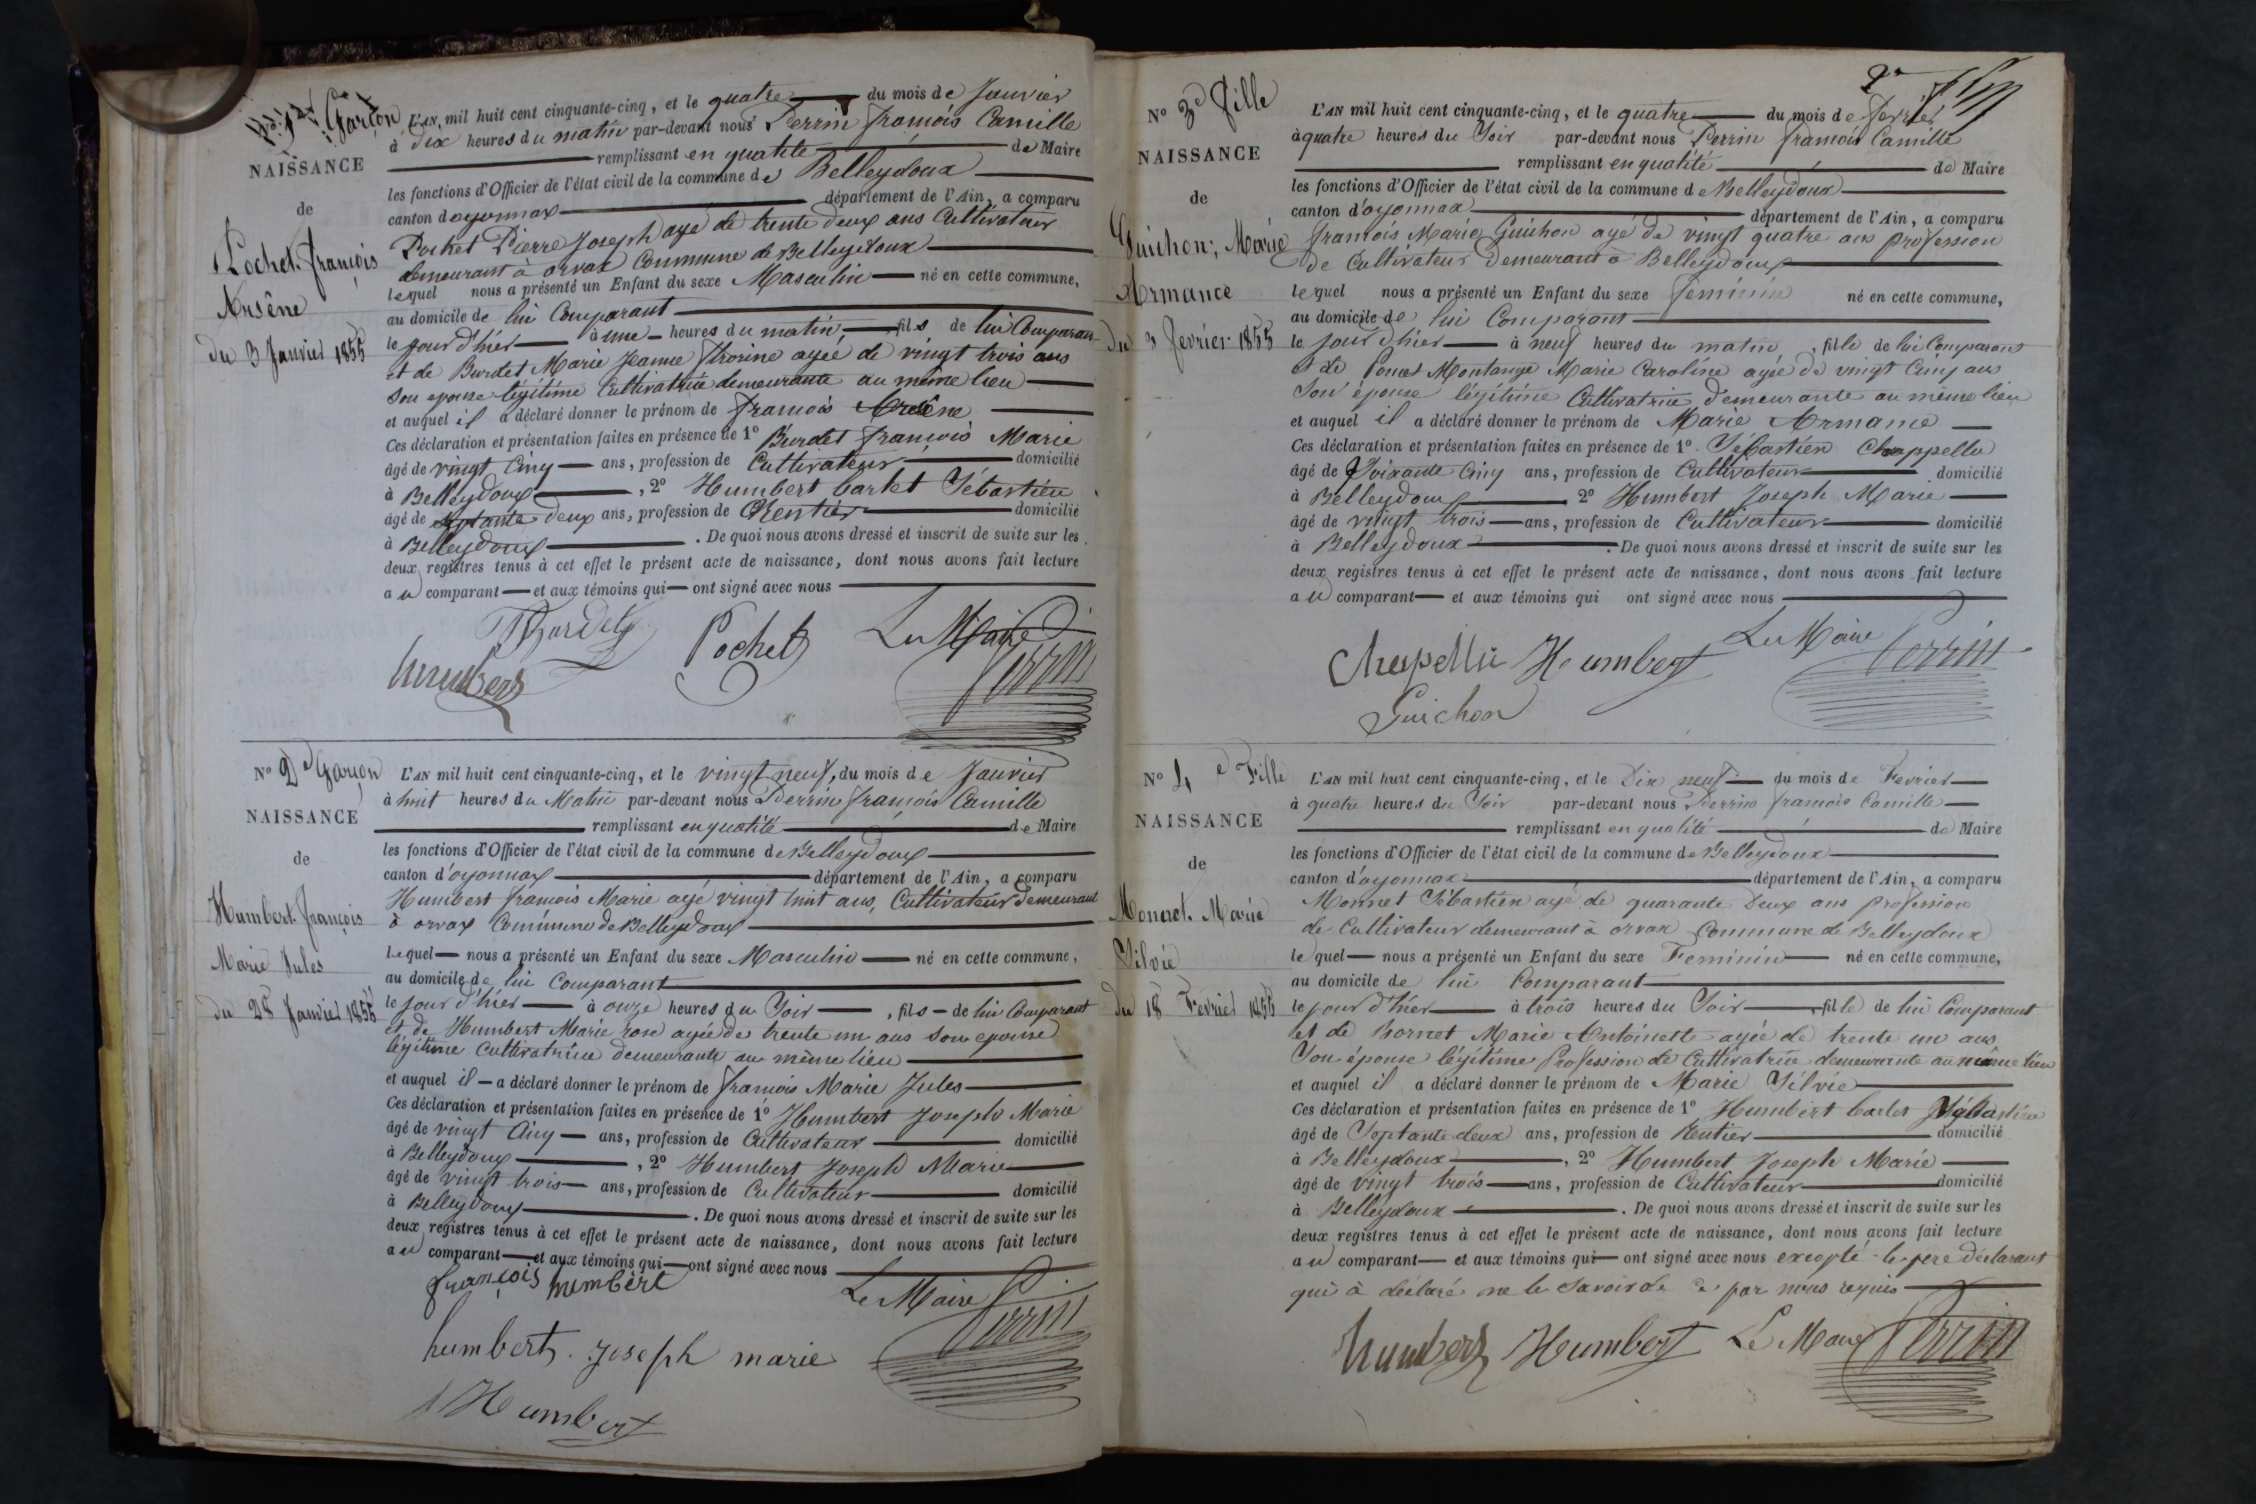 No 1er Garçon
NAISSANCE
de
Pochet François
Arsêne
du 3 Janvier 1855
L'AN, mil huit cent cinquante-cinq, et le quatre du mois de Janvier
à dix heures du matin par-devant nous Perrin françois Camille
remplissant en qualité de Maire
les fonctions d'Officier de l'état civil de la commune de Belleydoux
canton d'oyonnax département de l'Ain, a comparu
Pochet Pierre Joseph agé de trente deux ans Cultivateur
demeurant à orvax Commune de Belleydoux
lequel nous a présenté un Enfant du sexe Masculin né en cette commune,
au domicile de lui Comparant
le jour d'hier à une heures du matin, fils de lui Comparant
et de Burdet Marie Jeanne agée de vingt trois ans
Son epouse légitime Cultivatrice demeurante au même lieu
et auquel il a déclaré donner le prénom de françois Arsêne
Ces déclaration et présentation faites en présence de 1º Burdet françois Marie
âgé de vingt Cinq ans, profession de Cultivateur domicilié
à Belleydoux, 2º Humbert Carlet Sébastien
âgé de Septante deux ans, profession de Rentier domicilié
à Belleydoux. De quoi nous avons dressé et inscrit de suite sur les
deux registres tenus à cet effet le présent acte de naissance, dont nous avons fait lecture
au comparant et aux témoins qui ont signé avec nous
Burdet Pochet Le Maire
humbert Perrin
No 2e Garçon
NAISSANCE
de
Humbert François
Marie Jules
du 28 Janvier 1855
L'AN mil huit cent cinquante-cinq, et le vingt neuf, du mois de Janvier
à huit heures du Matin par-devant nous Perrin françois Camille
remplissant en qualité de Maire
les fonctions d'Officier de l'état civil de la commune de Belleydoux
canton d'oyonnax département de l'Ain, a comparu
Humbert françois Marie agé vingt huit ans, Cultivateur demeurant
à orvax Commune de Belleydoux
lequel nous a présenté un Enfant du sexe Masculin né en cette commune,
au domicile de lui Comparant
le jour d'hier à onze heures du Soir, fils de lui Comparant
et de Humbert Marie rose agée de trente un ans Son epouse
légitime Cultivatrice demeurante au même lieu
et auquel il a déclaré donner le prénom de françois Marie Jules
Ces déclaration et présentation faites en présence de 1º Humbert Joseph Marie
âgé de vingt Cinq ans, profession de Cultivateur domicilié
à Belleydoux, 2º Humbert Joseph Marie
âgé de vingt trois ans, profession de Cultivateur domicilié
à Belleydoux. De quoi nous avons dressé et inscrit de suite sur les
deux registres tenus à cet effet le présent acte de naissance, dont nous avons fait lecture
au comparant et aux témoins qui ont signé avec nous
françois humbert Le Maire
humbert joseph marie Perrin
Humbert
No 3e fille
NAISSANCE
de
Guichon, Marie
Armance
du 3 fevrier 1855
L'AN mil huit cent cinquante-cinq, et le quatre du mois de fevrier
à quatre heures du Soir par-devant nous Perrin françois Camille
remplissant en qualité de Maire
les fonctions d'Officier de l'état civil de la commune de Belleydoux
canton d'oyonnax département de l'Ain, a comparu
françois Marie Guichon agé de vingt quatre ans profession
de Cultivateur Demeurant à Belleydoux
lequel nous a présenté un Enfant du sexe feminin né en cette commune,
au domicile de lui Comparant
le jour d'hier à neuf heures du matin, fille de lui Comparant
et de Poncet Montange Marie Caroline agée de vingt Cinq ans
Son épouse légitime Cultivatrice demeurante au même lieu
et auquel il a déclaré donner le prénom de Marie Armance
Ces déclaration et présentation faites en présence de 1º Sébastien Chappellu
âgé de Soixante Cinq ans, profession de Cultivateur domicilié
à Belleydoux 2º Humbert Joseph Marie
âgé de vingt trois ans, profession de Cultivateur domicilié
à Belleydoux. De quoi nous avons dressé et inscrit de suite sur les
deux registres tenus à cet effet le présent acte de naissance, dont nous avons fait lecture
au comparant et aux témoins qui ont signé avec nous
Chapellu Humbert Le Maire Perrin
Guichon
No 4e Fille
NAISSANCE
de
Monnet Marie
Silvie
du 18 Fevrier 1855
L'AN mil huit cent cinquante-cinq, et le Dix neuf du mois de Fevrier
à quatre heures du Soir par-devant nous Perrin françois Camille
remplissant en qualité de Maire
les fonctions d'Officier de l'état civil de la commune de Belleydoux
canton d'oyonnax département de l'Ain, a comparu
Monnet Sébastien agé de quarante Deux ans profession
de Cultivateur demeurant à orvax Commune de Belleydoux
lequel nous a présenté un Enfant du sexe Feminin né en cette commune,
au domicile de lui Comparant
le jour d'hier à trois heures du Soir, fille de lui Comparant
et de Bornet Marie Antoinette agée de trente un ans
Son épouse légitime Profession de Cultivatrice demeurante au même lieu
et auquel il a déclaré donner le prénom de Marie Silvie
Ces déclaration et présentation faites en présence de 1º Humbert Carlet Sébastien
âgé de Septante deux ans, profession de Rentier domicilié
à Belleydoux, 2º Humbert Joseph Marie
âgé de vingt trois ans, profession de Cultivateur domicilié
à Belleydoux. De quoi nous avons dressé et inscrit de suite sur les
deux registres tenus à cet effet le présent acte de naissance, dont nous avons fait lecture
au comparant et aux témoins qui ont signé avec nous excepté le pere déclarant
qui à déclaré ne le Savoir de ce par nous requis
humbert Humbert Le Maire Perrin